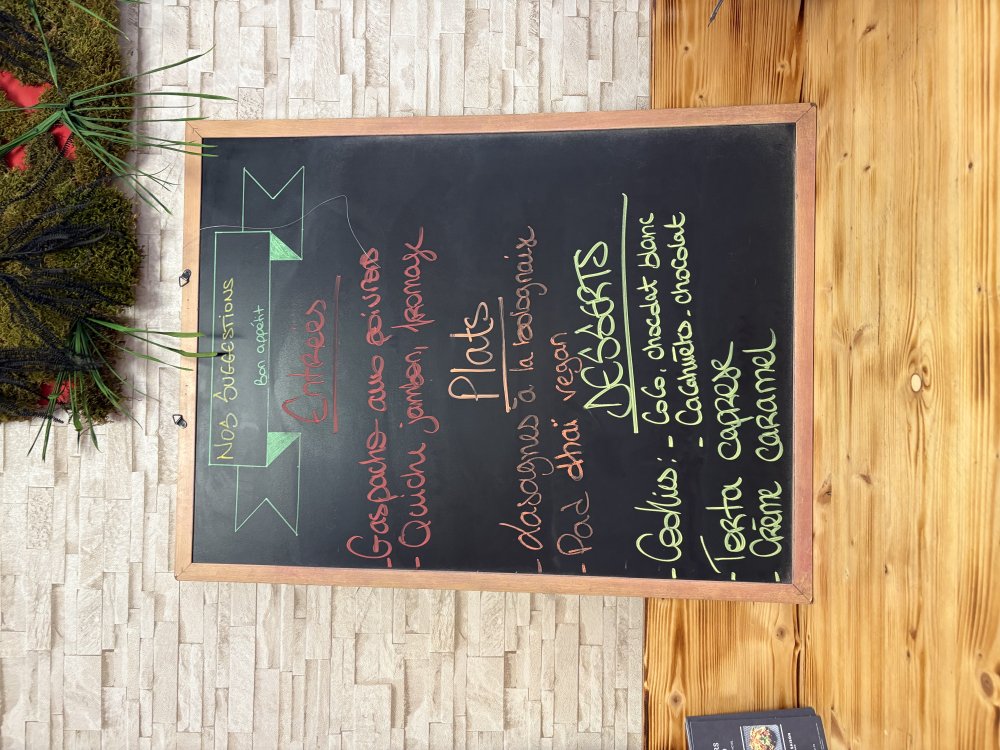 NOS SUGGESTIONS
Bon appétit
Entrees
- Gaspacho aux poivrons
- Quiche jambon, fromage
Plats
- Lasagnes à la bolognaise
- Pad thaï vegan
DESSERTS
- Cookies : - Coco, chocolat blanc
- Cacahuètes - chocolat
- Torta caprese
- Crème caramel